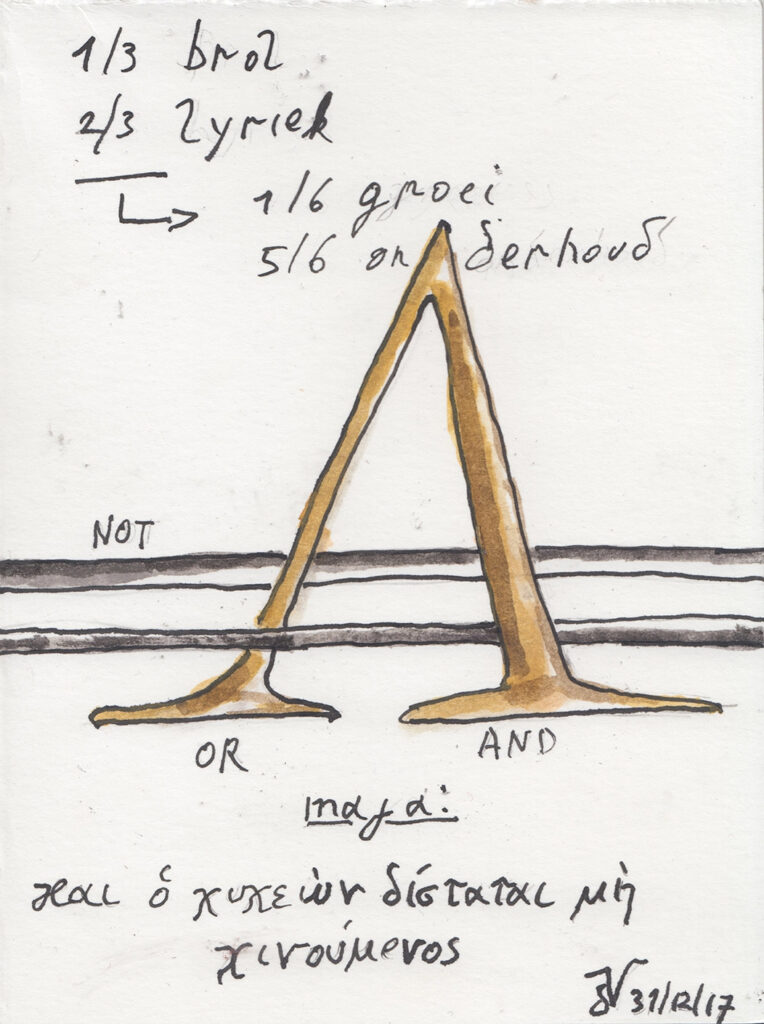 1/3 brol
2/3 lyriek
1/6 groei
5/6 onderhoud
NOT
OR
AND
και ὁ κυκεὼν δίσταται μὴ
κινούμενος
31/12/17